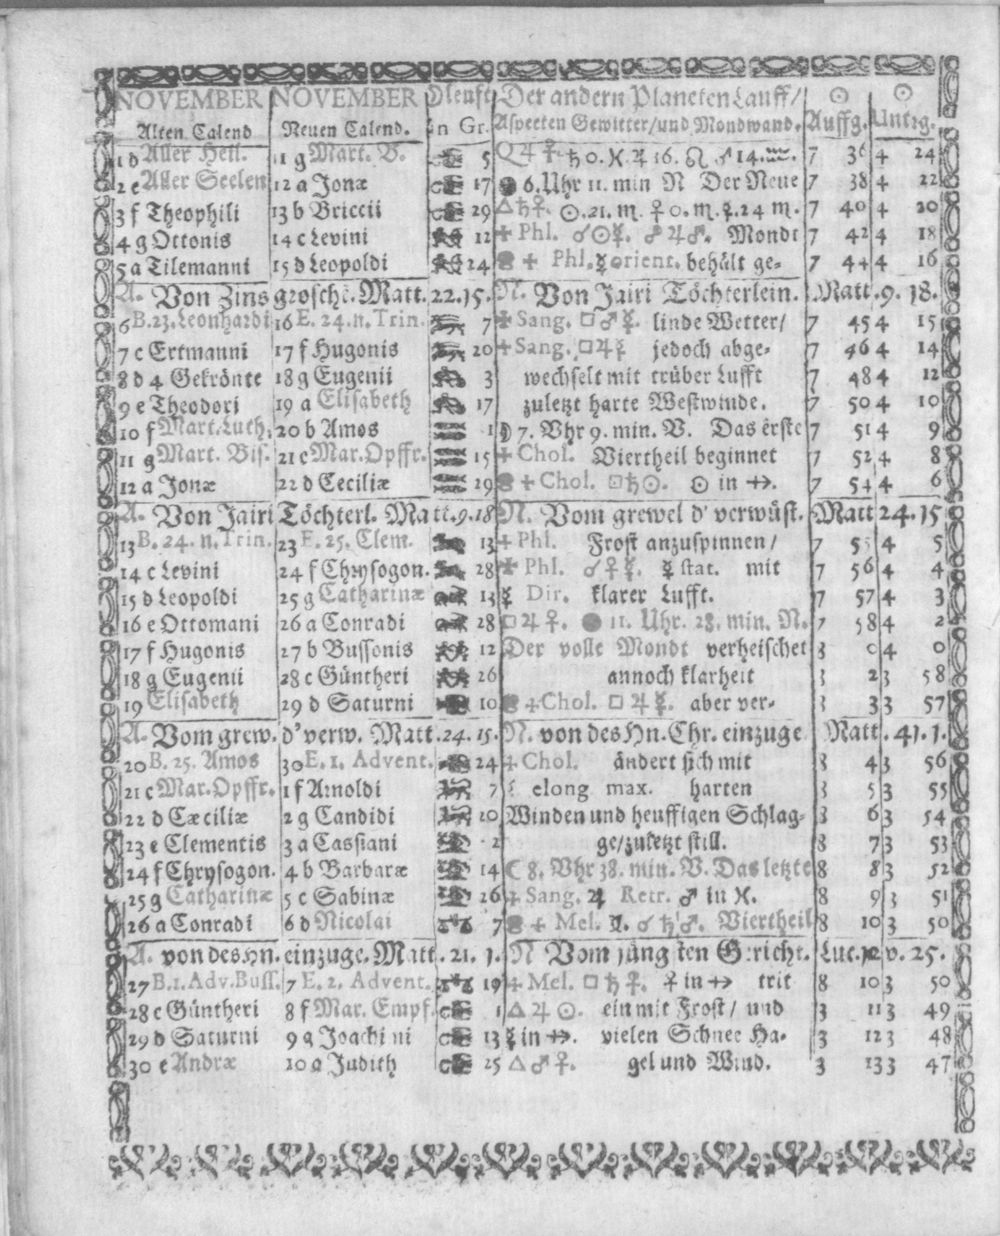 NOVEMBER NOVEMBER Der andern Planeten Lauff/ ☉ ☉
Alten Calend Neuen Calend. in Gr. Aspecten Gewitter/und Mondwand. Auffg. Untrg.
1 d Aller Heil. 11 g Mart. B. 5 ♄ 0. ♓ ♃ 16. ♌ ♂ 14. ♒. 7 36 4 24
2 e Aller Seelen 12 a Jonæ 17 6. Uhr 11. min N Der Neue 7 38 4 22
3 f Theophili 13 b Briccii 29 △♄♀. ☉.21. ♏. ♀ 0. ♏. ☿.24 ♏. 7 40 4 20
4 g Ottonis 14 c Levini 12 + Phl. ☌☉☿. ☍♃♂. Mondt 7 42 4 18
5 a Tilemanni 15 d Leopoldi 24 + Phl. ☿ orient. behält ge- 7 44 4 16
A. Von Zinsgroschē. Matt. 22. 15. N. Von Jairi Töchterlein. Matt. 9. 18.
6 B. 23. Leonhardi 16 E. 24. n. Trin. 7 + Sang. □♂☿. linde Wetter/ 7 45 4 15
7 c Ertmanni 17 f Hugonis 20 + Sang. □♃☿ jedoch abge- 7 46 4 14
8 d 4 Gekrönte 18 g Eugenii 3 wechselt mit trüber Lufft 7 48 4 12
9 e Theodori 19 a Elisabeth 17 zuletzt harte Westwinde. 7 50 4 10
10 f Mart. Luth. 20 b Amos 1 ☽ 7. Vhr 9. min. V. Das erste 7 51 4 9
11 g Mart. Bis. 21 c Mar. Opffr. 15 + Chol. Viertheil beginnet 7 52 4 8
12 a Jonæ 22 d Ceciliæ 29 + Chol. □♄☉. ☉ in ♐. 7 54 4 6
A. Von Jairi Töchterl. Matt. 9. 18 N. Vom grewel d' verwüst. Matt 24. 15
13 B. 24. n. Trin. 23 E. 25. Clem. 13 + Phl. Frost anzuspinnen/ 7 55 4 5
14 c Levini 24 f Chrysogon. 28 + Phl. ☌♀☿. ☿ stat. mit 7 56 4 4
15 d Leopoldi 25 g Catharinæ 13 ☿ Dir. klarer Lufft. 7 57 4 3
16 e Ottomani 26 a Conradi 28 □♃♀. 11. Uhr. 28. min. N. 7 58 4 2
17 f Hugonis 27 b Bussonis 12 Der volle Mondt verheischet 8 0 4 0
18 g Eugenii 28 c Güntheri 26 annoch klarheit 8 2 3 58
19 Elisabeth 29 d Saturni 10 + Chol. □♃☿. aber ver- 8 3 3 57
A. Vom grew. d' verw. Matt. 24. 15. N. von des Hn. Chr. einzuge Matt. 21. 1.
20 B. 25. Amos 30 E. 1. Advent. 24 + Chol. ändert sich mit 8 4 3 56
21 c Mar. Opffr. 1 f Arnoldi 7 elong max. harten 8 5 3 55
22 d Cæciliæ 2 g Candidi 20 Winden und heuffigen Schlag- 8 6 3 54
23 e Clementis 3 a Cassiani 2 ge/zuletzt still. 8 7 3 53
24 f Chrysogon. 4 b Barbaræ 14 ☾ 8. Vhr 38. min. V. Das letzte 8 8 3 52
25 g Catharinæ 5 c Sabinæ 26 + Sang. ♃ Retr. ♂ in ♓. 8 9 3 51
26 a Conradi 6 d Nicolai 7 + Mel. ☌ ♄♂. Viertheil 8 10 3 50
A. von des Hn. einzuge. Matt. 21. 1. N Vom jüngsten Gericht. Luc. v. 25.
27 B. 1. Adv. Buss. 7 E. 2. Advent. 19 + Mel. □♄♀. ♀ in ♐ trit 8 10 3 50
28 c Güntheri 8 f Mar. Empf. 1 △♃☉. ein mit Frost/ und 8 11 3 49
29 d Saturni 9 g Joachi ni 13 ☿ in ♐. vielen Schnee Ha- 8 12 3 48
30 e Andræ 10 a Judith 25 △♂♀. gel und Wind. 8 13 3 47